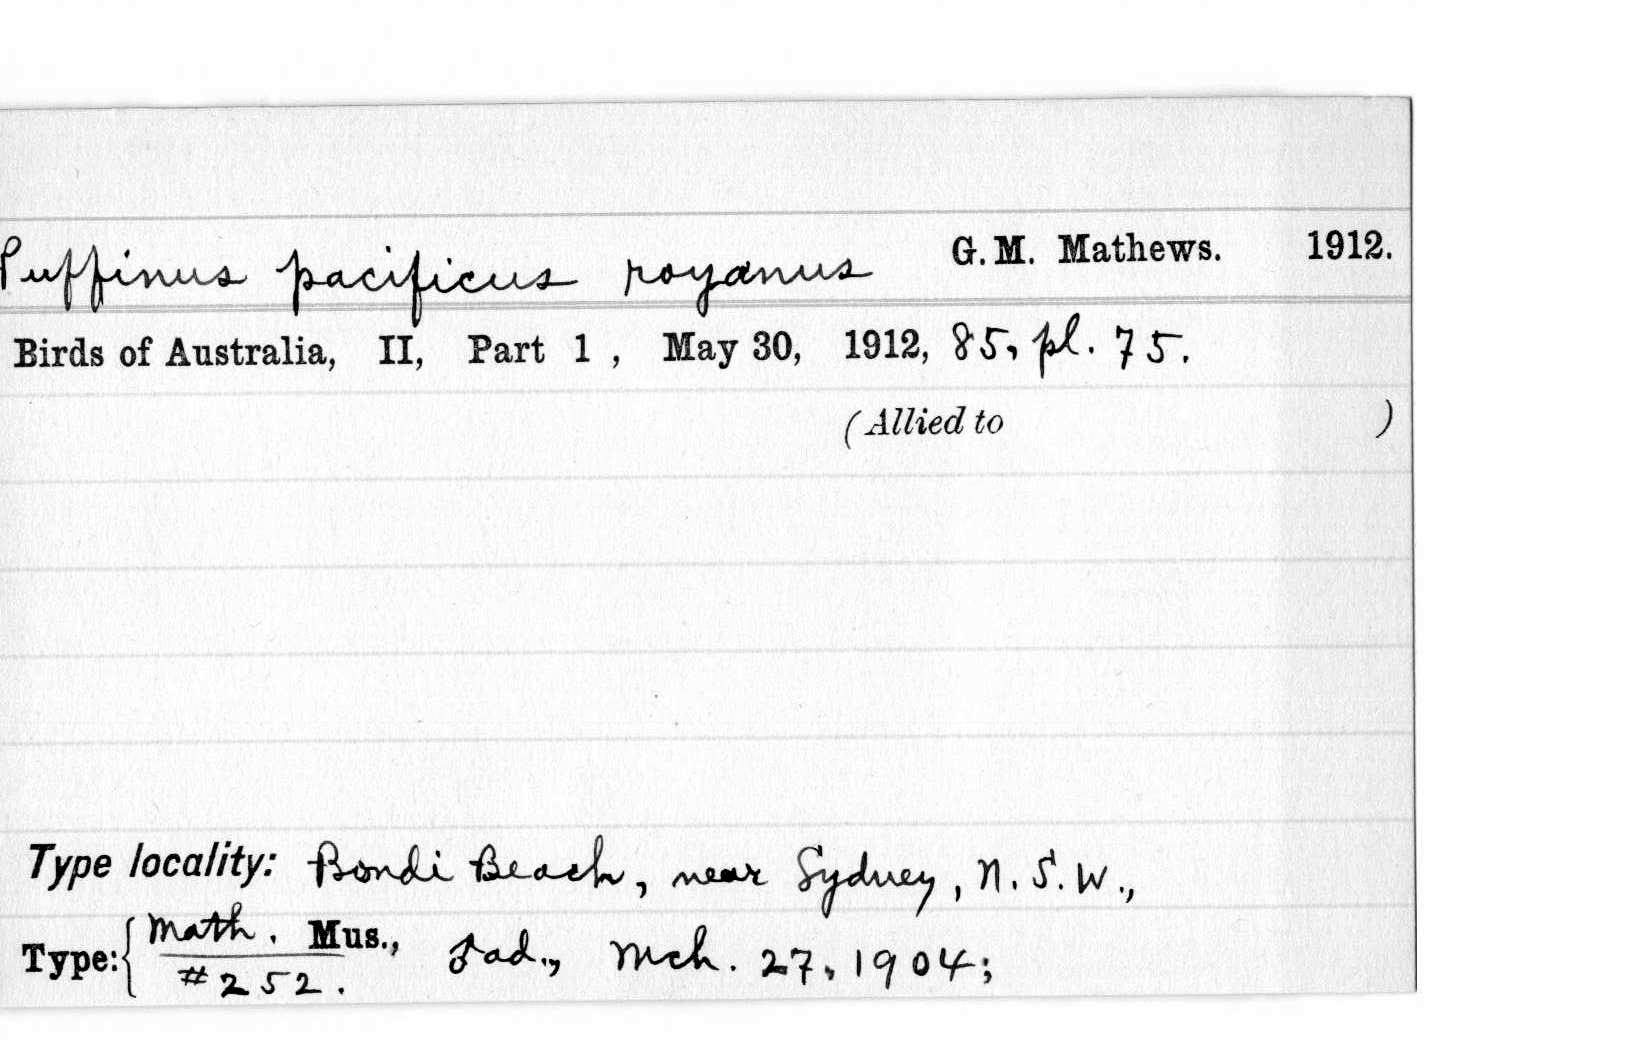 Puffinus pacificus royanus G. M. Mathews. 1912.
Birds of Australia, II, Part 1, May 30, 1912, 85, pl. 75.
(Allied to )
Type locality: Bondi Beach, near Sydney, N. S. W.,
Type: { Math. Mus., ♂ ad., Mch. 27, 1904;
#252.